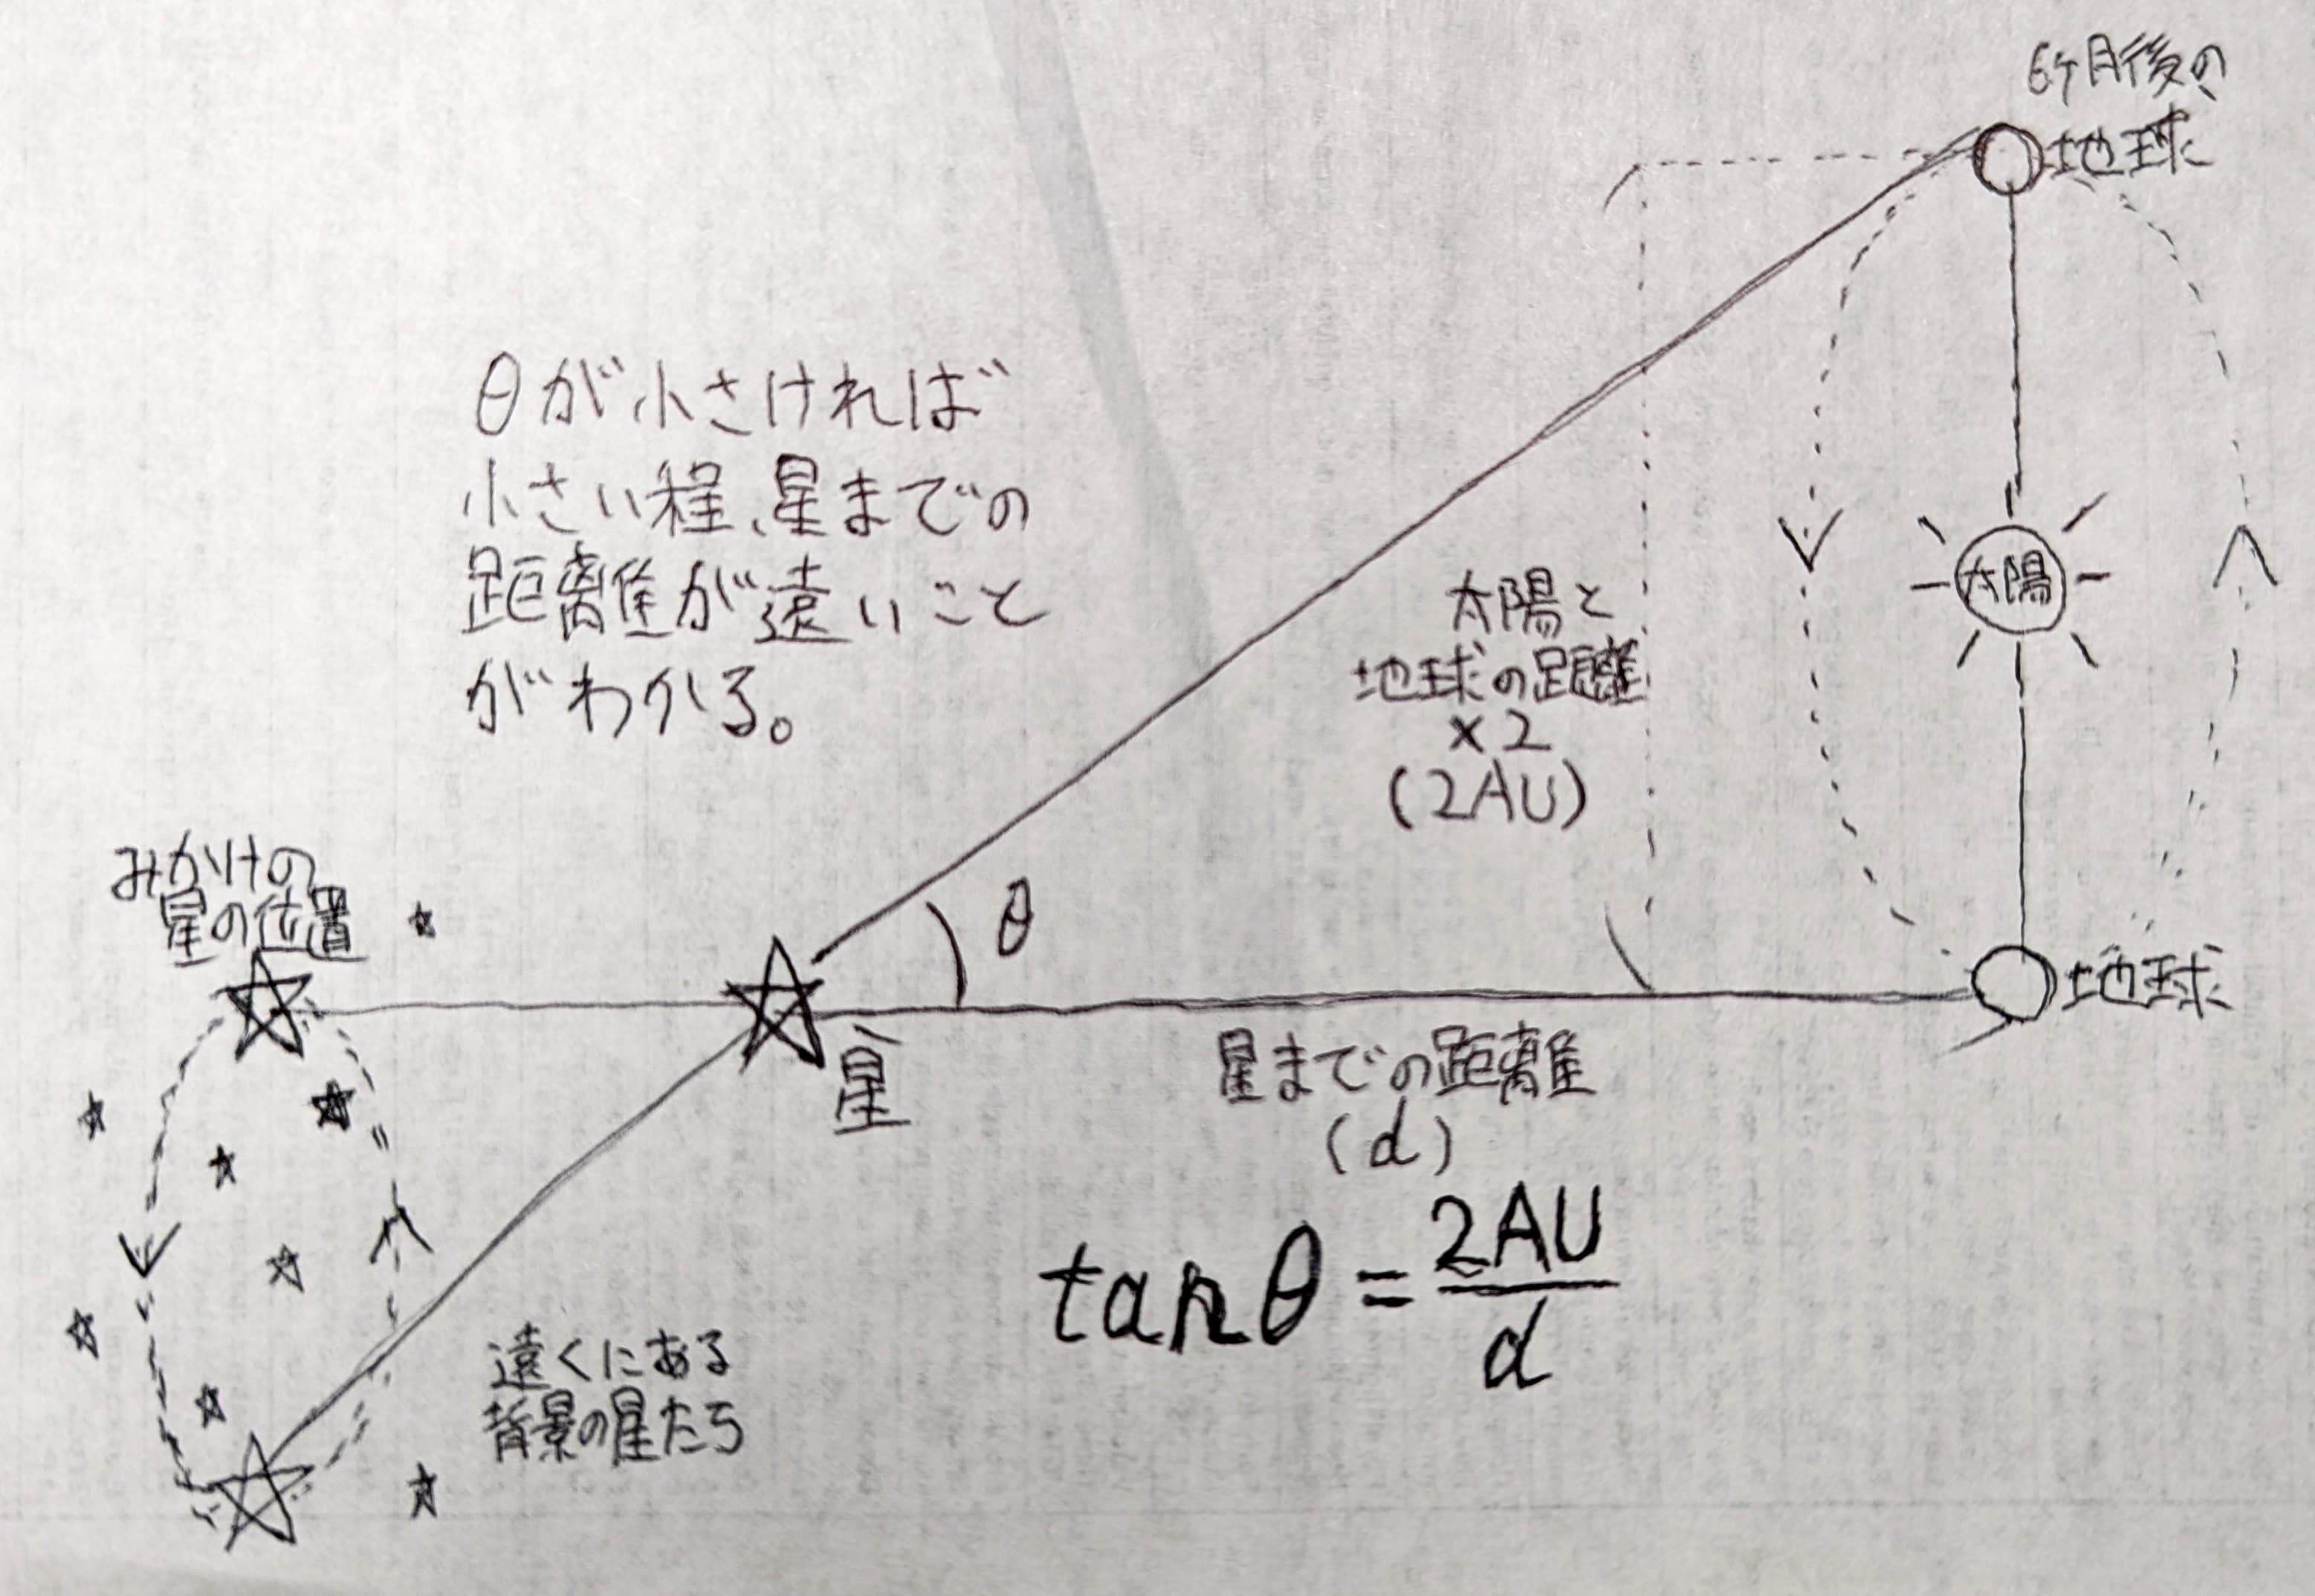 6ヶ月後の
地球
θが小さければ
小さい程、星までの
距離が遠いこと
がわかる。
太陽
太陽と
地球の距離
×2
(2AU)
みかけの
星の位置
θ
地球
星
星までの距離
(d)
tanθ=2AU/d
遠くにある
背景の星たち